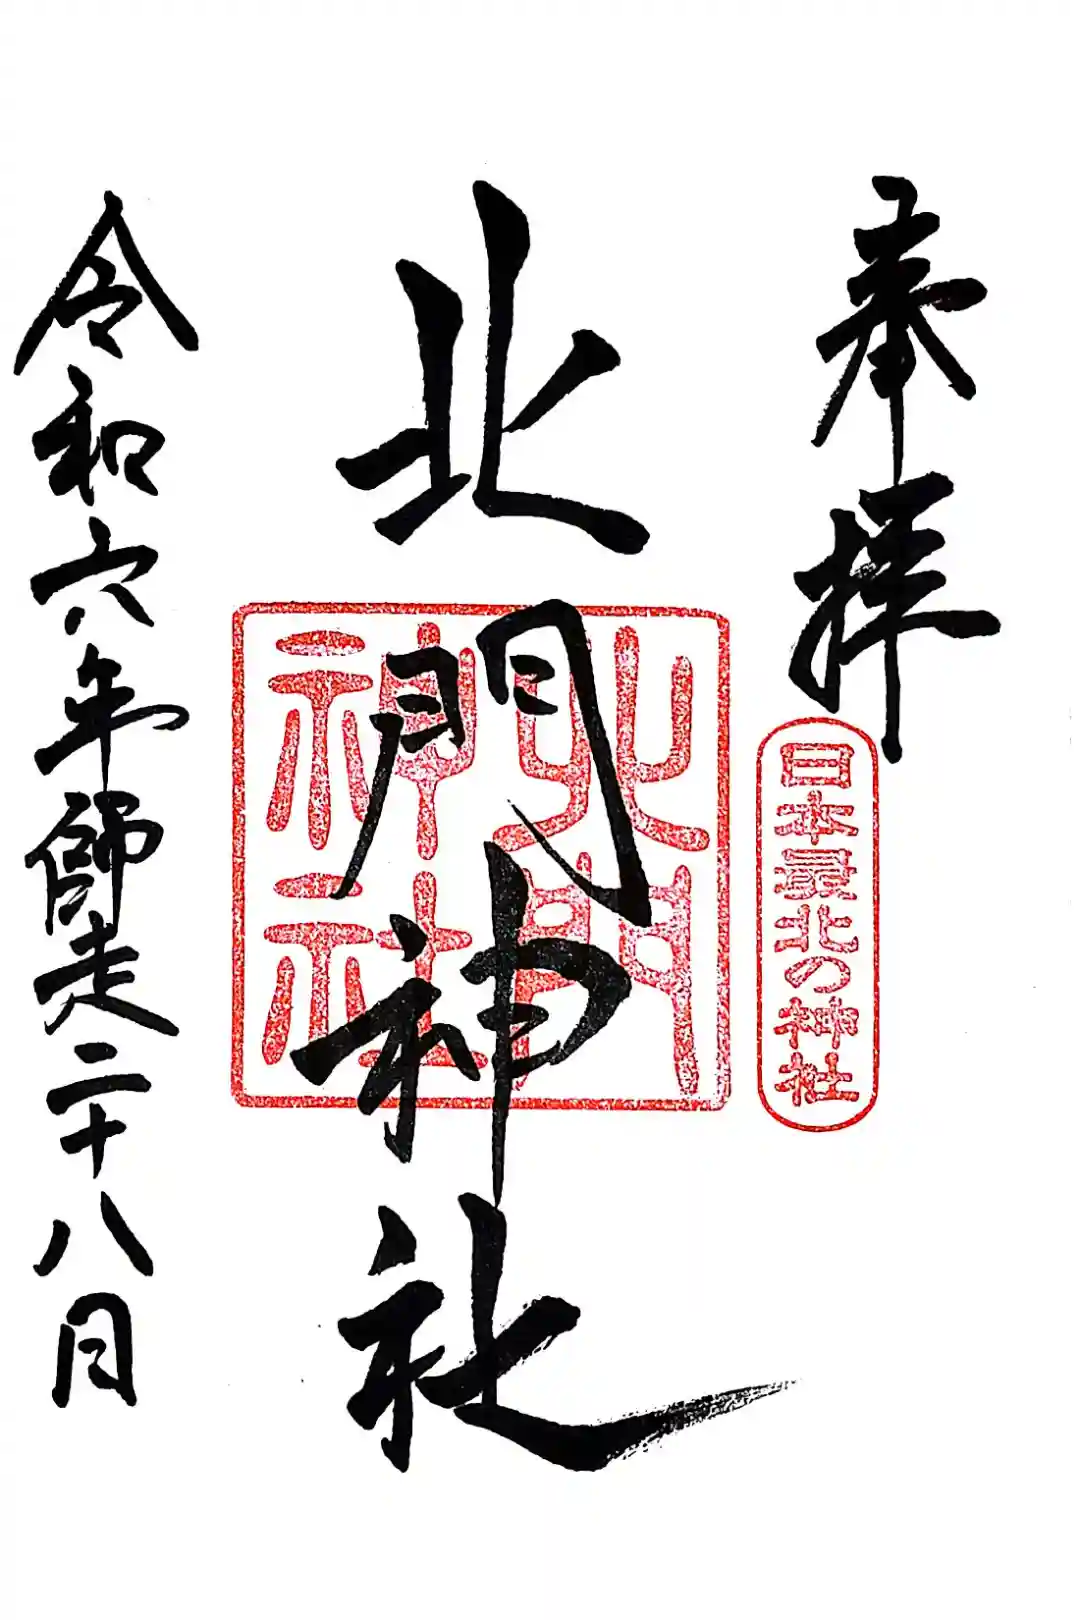 奉拝
日本最北の神社
北門神社
北門
神社
令和六年師走二十八日